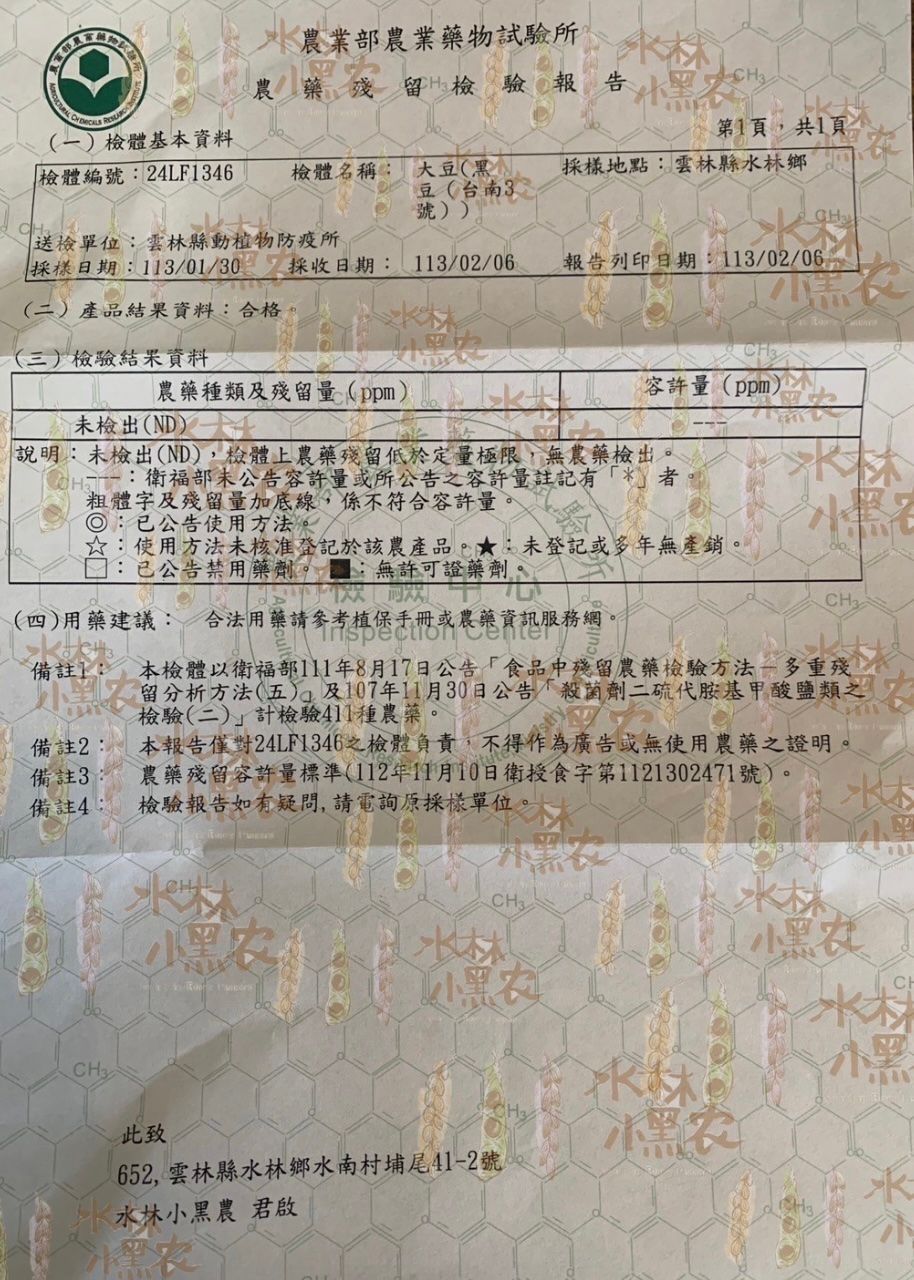 農業部農業藥物試驗所
農藥殘留檢驗報告
AGRICULTURAL CHEMICALS RESEARCH INSTITUTE
第1頁，共1頁
(一)檢體基本資料
檢體編號：24LF1346 檢體名稱： 大豆(黑豆（台南3號）) 採樣地點：雲林縣水林鄉
送檢單位：雲林縣動植物防疫所
採樣日期：113/01/30 採收日期： 113/02/06 報告列印日期：113/02/06
(二)產品結果資料：合格。
(三)檢驗結果資料
農藥種類及殘留量(ppm) 容許量(ppm)
未檢出(ND) ---
說明：未檢出(ND)，檢體上農藥殘留低於定量極限，無農藥檢出。
---：衛福部未公告容許量或所公告之容許量註記有「*」者。
粗體字及殘留量加底線，係不符合容許量。
◎：已公告使用方法。
☆：使用方法未核准登記於該農產品。★：未登記或多年無產銷。
□：已公告禁用藥劑。■：無許可證藥劑。
檢驗中心
Inspection Center
(四)用藥建議： 合法用藥請參考植保手冊或農藥資訊服務網。
備註1： 本檢體以衛福部111年8月17日公告「食品中殘留農藥檢驗方法－多重殘
留分析方法(五)」及107年11月30日公告「殺菌劑二硫代胺基甲酸鹽類之
檢驗(二)」計檢驗411種農藥。
備註2： 本報告僅對24LF1346之檢體負責，不得作為廣告或無使用農藥之證明。
備註3： 農藥殘留容許量標準(112年11月10日衛授食字第1121302471號)。
備註4： 檢驗報告如有疑問,請電詢原採樣單位。
水林
小黑农
此致
652,雲林縣水林鄉水南村埔尾41-2號
水林小黑農 君啟